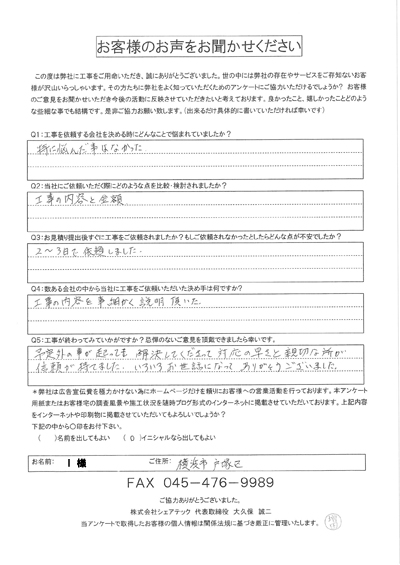 お客様のお声をお聞かせください
この度は弊社に工事をご用命いただき、誠にありがとうございました。世の中には弊社の存在やサービスをご存知ないお客
様が沢山いらっしゃいます。その方たちに弊社をよく知っていただくためのアンケートにご協力いただけるでしょうか？ お客様
のご意見をお聞かせいただき今後の活動に反映させていただきたいと考えております。良かったこと、嬉しかったことどのよう
な些細な事でも結構です。是非ご協力お願い致します。（出来るだけ具体的に書いていただければ幸いです）
Q1：工事を依頼する会社を決める時にどんなことで悩まれていましたか？
特に悩んだ事はなかった
Q2：当社にご依頼いただく際にどのような点を比較・検討されましたか？
工事の内容と金額
Q3：お見積り提出後すぐに工事をご依頼されましたか？もしご依頼されなかったとしたらどんな点が不安でしたか？
2～3日で依頼しました.
Q4：数ある会社の中から当社に工事をご依頼いただいた決め手は何ですか？
工事の内容を事細かく説明頂いた.
Q5：工事が終わってみていかがですか？忌憚のないご意見を頂戴できましたら幸いです。
予定外の事が起っても 解決してくださって対応の早さと親切な所が
信頼が持てました. いろいろお世話になって ありがとうございました.
＊弊社は広告宣伝費を極力かけない為にホームページだけを頼りにお客様への営業活動を行っております。本アンケート
用紙またはお客様宅の調査風景や施工状況を随時ブログ形式のインターネットに掲載させていただいております。上記内容
をインターネットや印刷物に掲載させていただいてもよろしいでしょうか？
下記の中から○印をお付下さい。
（　）名前を出してもよい　（ O ）イニシャルなら出してもよい
お名前： I 様 ご住所： 横浜市戸塚区
FAX 045-476-9989
ご協力ありがとうございました。
株式会社シェアテック 代表取締役 大久保 誠二
当アンケートで取得したお客様の個人情報は関係法規に基づき厳正に管理いたします。